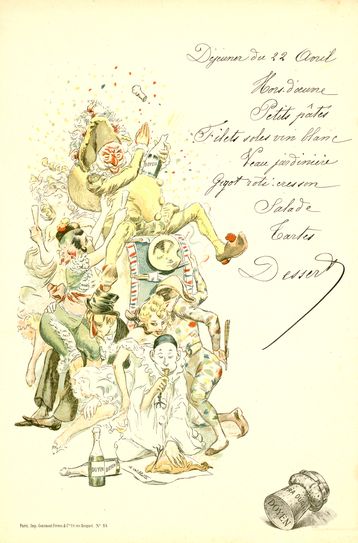 Déjeuner du 22 Avril
Hors d'œuvre
Petits pâtés
Filets soles vin blanc
Veau jardinière
Gigot roti cresson
Salade
Tartes
Dessert
DOYEN
DOYEN
DOYEN